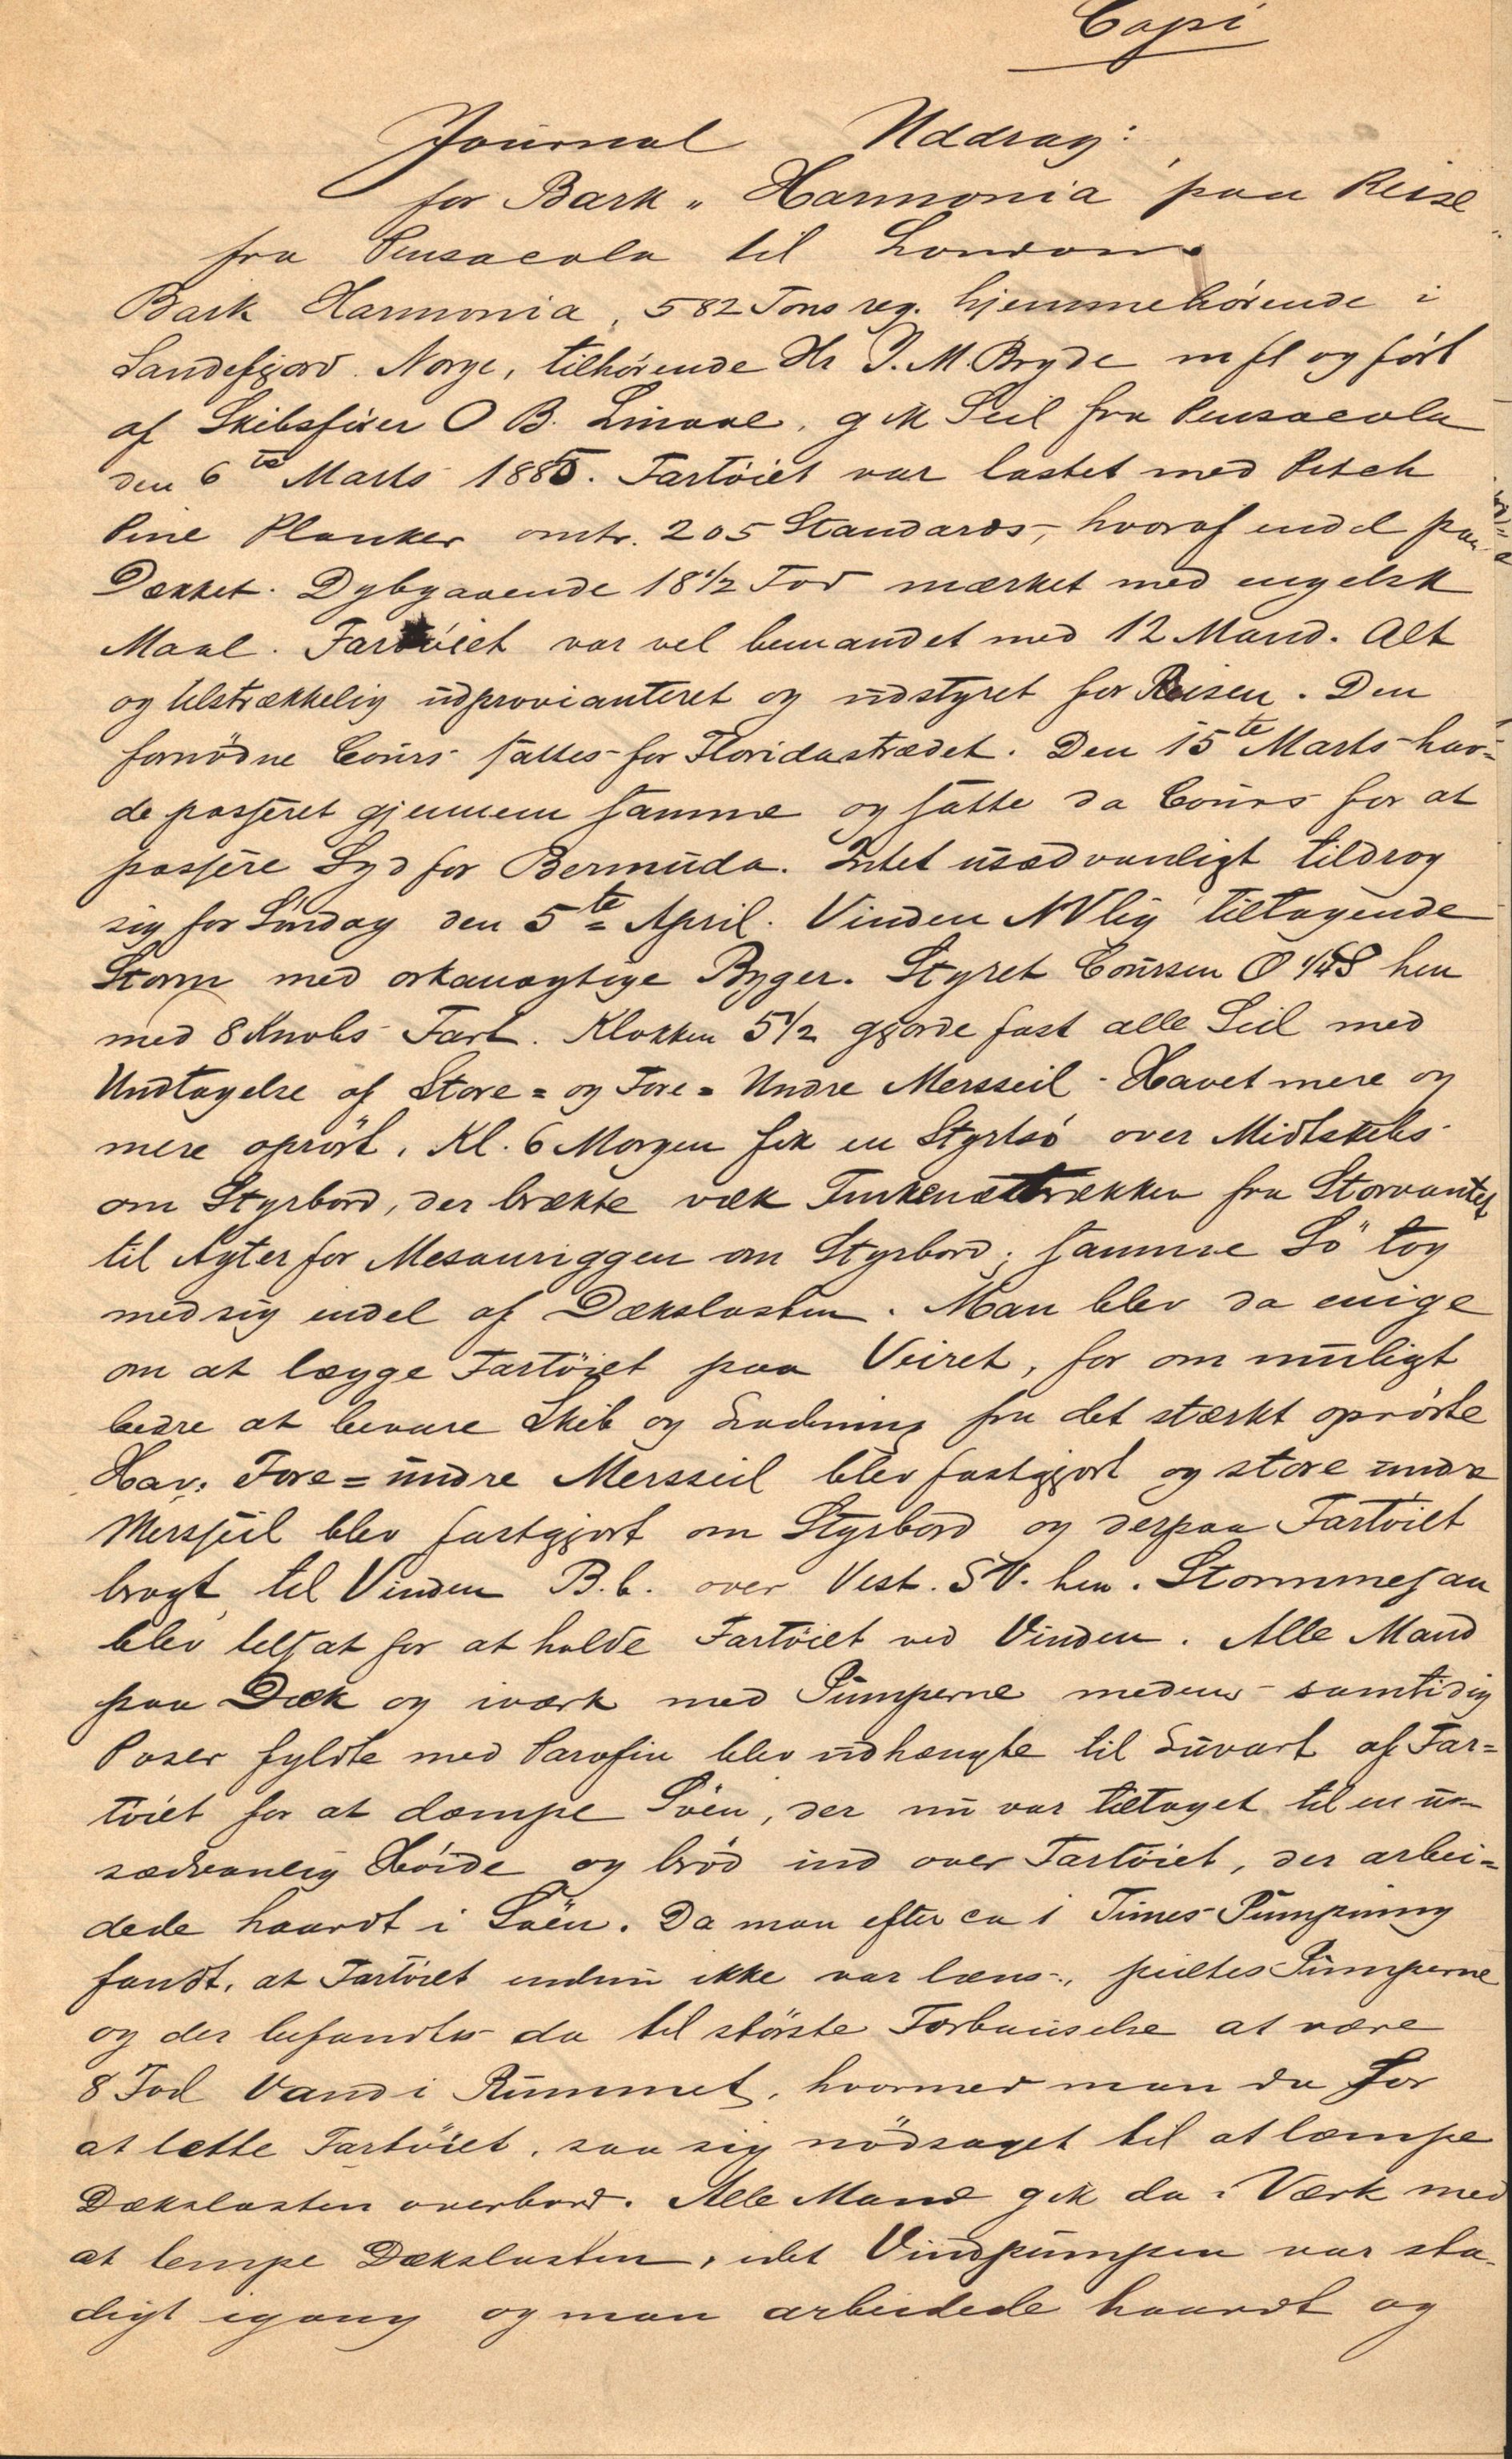 Copi
Journal Uddrag:
for Bark „Harmonia paa Reise
fra Pensacola til London.
Bark Harmonia, 582 Tons reg. hjemmehörende i
Sandefjord. Norge, tilhörende Hr J. M. Bryde m fl og fört
af Skibsförer O B. Linaae, gik Seil fra Pensacola
den 6te Marts 1885. Fartöiet var lastet med Pitch
Pine Planker omtr. 205 Standards, hvoraf endel paa
Dækket. Dybgaaende 18 1/2 Fod mærket med engelsk
Maal. Fartöiet var vel bemandet med 12 Mand. Alt
og tilstrækkelig udprovianteret og udstyret for Reisen. Den
fornödne Cours sattes for Floridastrædet. Den 15te Marts hav=
de passeret gjennem samme og satte da Cours for at
passere Syd for Bermuda. Intet usædvanligt tildrog
sig før Söndag den 5te April. Vinden NVlig tiltagende
Storm med orkanagtige Byger. Styret Coursen O 1/4 S hen
med 8 Knobs Fart. Klokken 5 1/2 gjorde fast alle Seil med
Undtagelse af Store= og Fore= Undre Mersseil. Havet mere og
mere oprört. Kl. 6 Morgen fik en Styrtsö over Midtskibs
om Styrbord, der brækte væk Finkenætrækken fra Storvantet
til Agter for Mesanriggen om Styrbord; samme Sö tog
med sig endel af Dækslasten. Man blev da enige
om at lægge Fartöiet paa Veiret, for om muligt
bedre at bevare Skib og Ladning fra det stærkt oprörte
Hav. Fore= undre Mersseil blev fastgjort og store undre
Mersseil blev fastgjort om Styrbord og derpaa Fartöiet
bragt til Vinden B.b. over Vest. S V. hen. Stormmesan
blev tilsat for at holde Fartöiet ved Vinden. Alle Mand
paa Dæk og iværk med Pumperne medens samtidig
Poser fyldte med Parafin blev udhængte til Luvart af Far=
töiet for at dæmpe Söen, der nu var tiltaget til en u=
sædvanlig Höide og bröd ind over Fartöiet, der arbei=
dede haardt i Söen. Da man efter ca 1 Times Pumpning
fandt, at Fartöiet endnu ikke var læns, peiltes Pumperne
og der befandtes da til störste Forbauselse at være
8 Fod Vand i Rummet, hvormed man da for
at lette Fartöiet, saa sig nödsaget til at læmpe
Dækslasten overbord. Alle Mand gik da i Værk med
at lempe Dækslasten, idet Vindpumpen var sta=
digt igang og man arbeidede haardt og